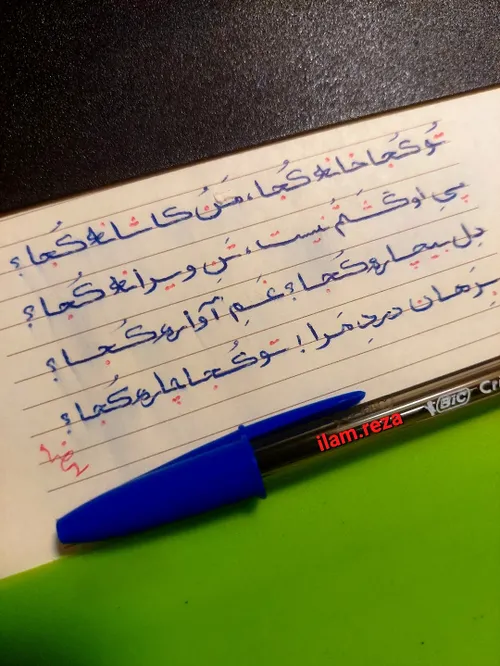 تُو کُجا خانه کُجا، مَنُ کاشانه کُجا؟
پیِ او گَشتَم نیست، تَنِ ویرانه کُجا؟
دلِ بیچاره کُجا؟ غَمِ آواره کُجا؟
بِرَهان دردِ مَرا! تو کُجا چاره کُجا؟
رضا
ilam.reza
BIC Cr